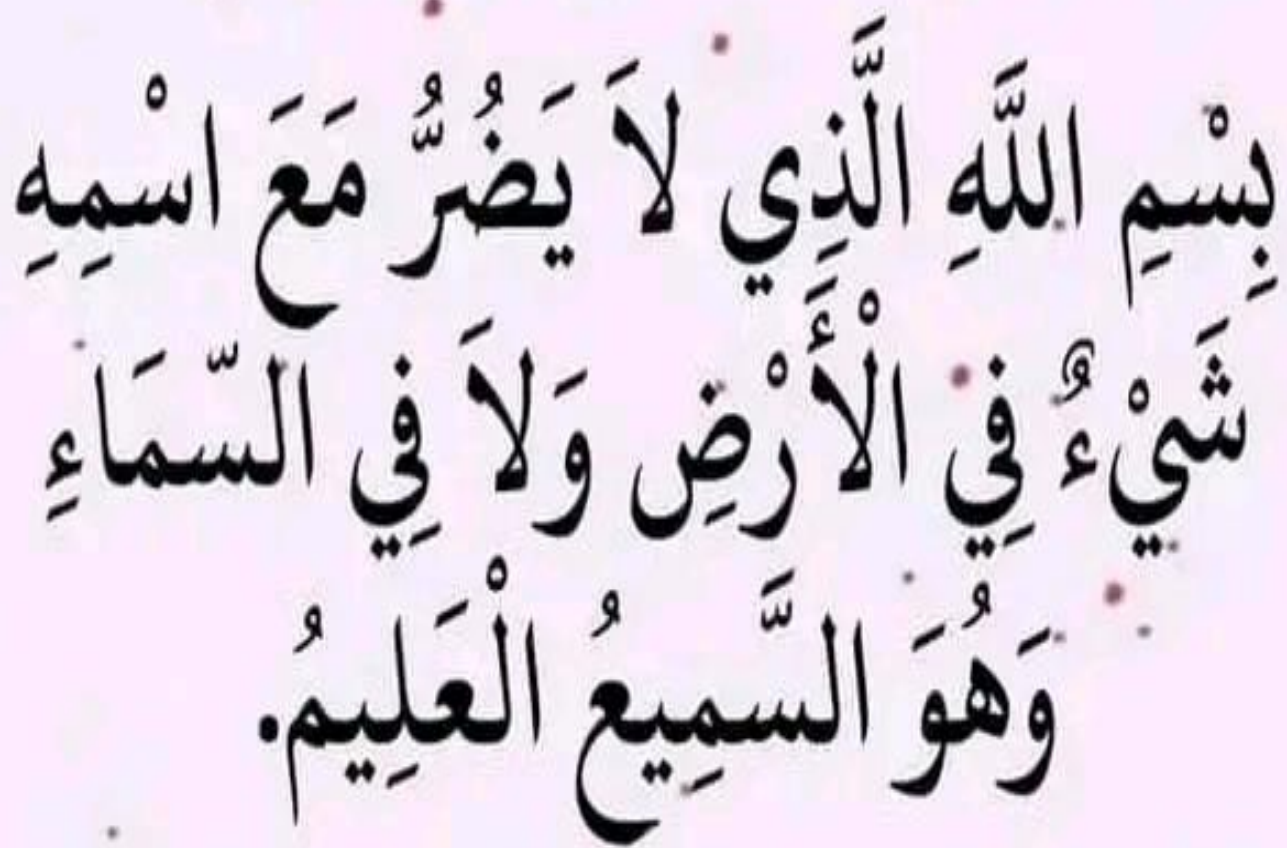 بِسْمِ اللَّهِ الَّذِي لاَ يَضُرُّ مَعَ اسْمِهِ
شَيْءٌ فِي الْأَرْضِ وَلاَ فِي السّمَاءِ
وَهُوَ السَّمِيعُ الْعَلِيمُ.